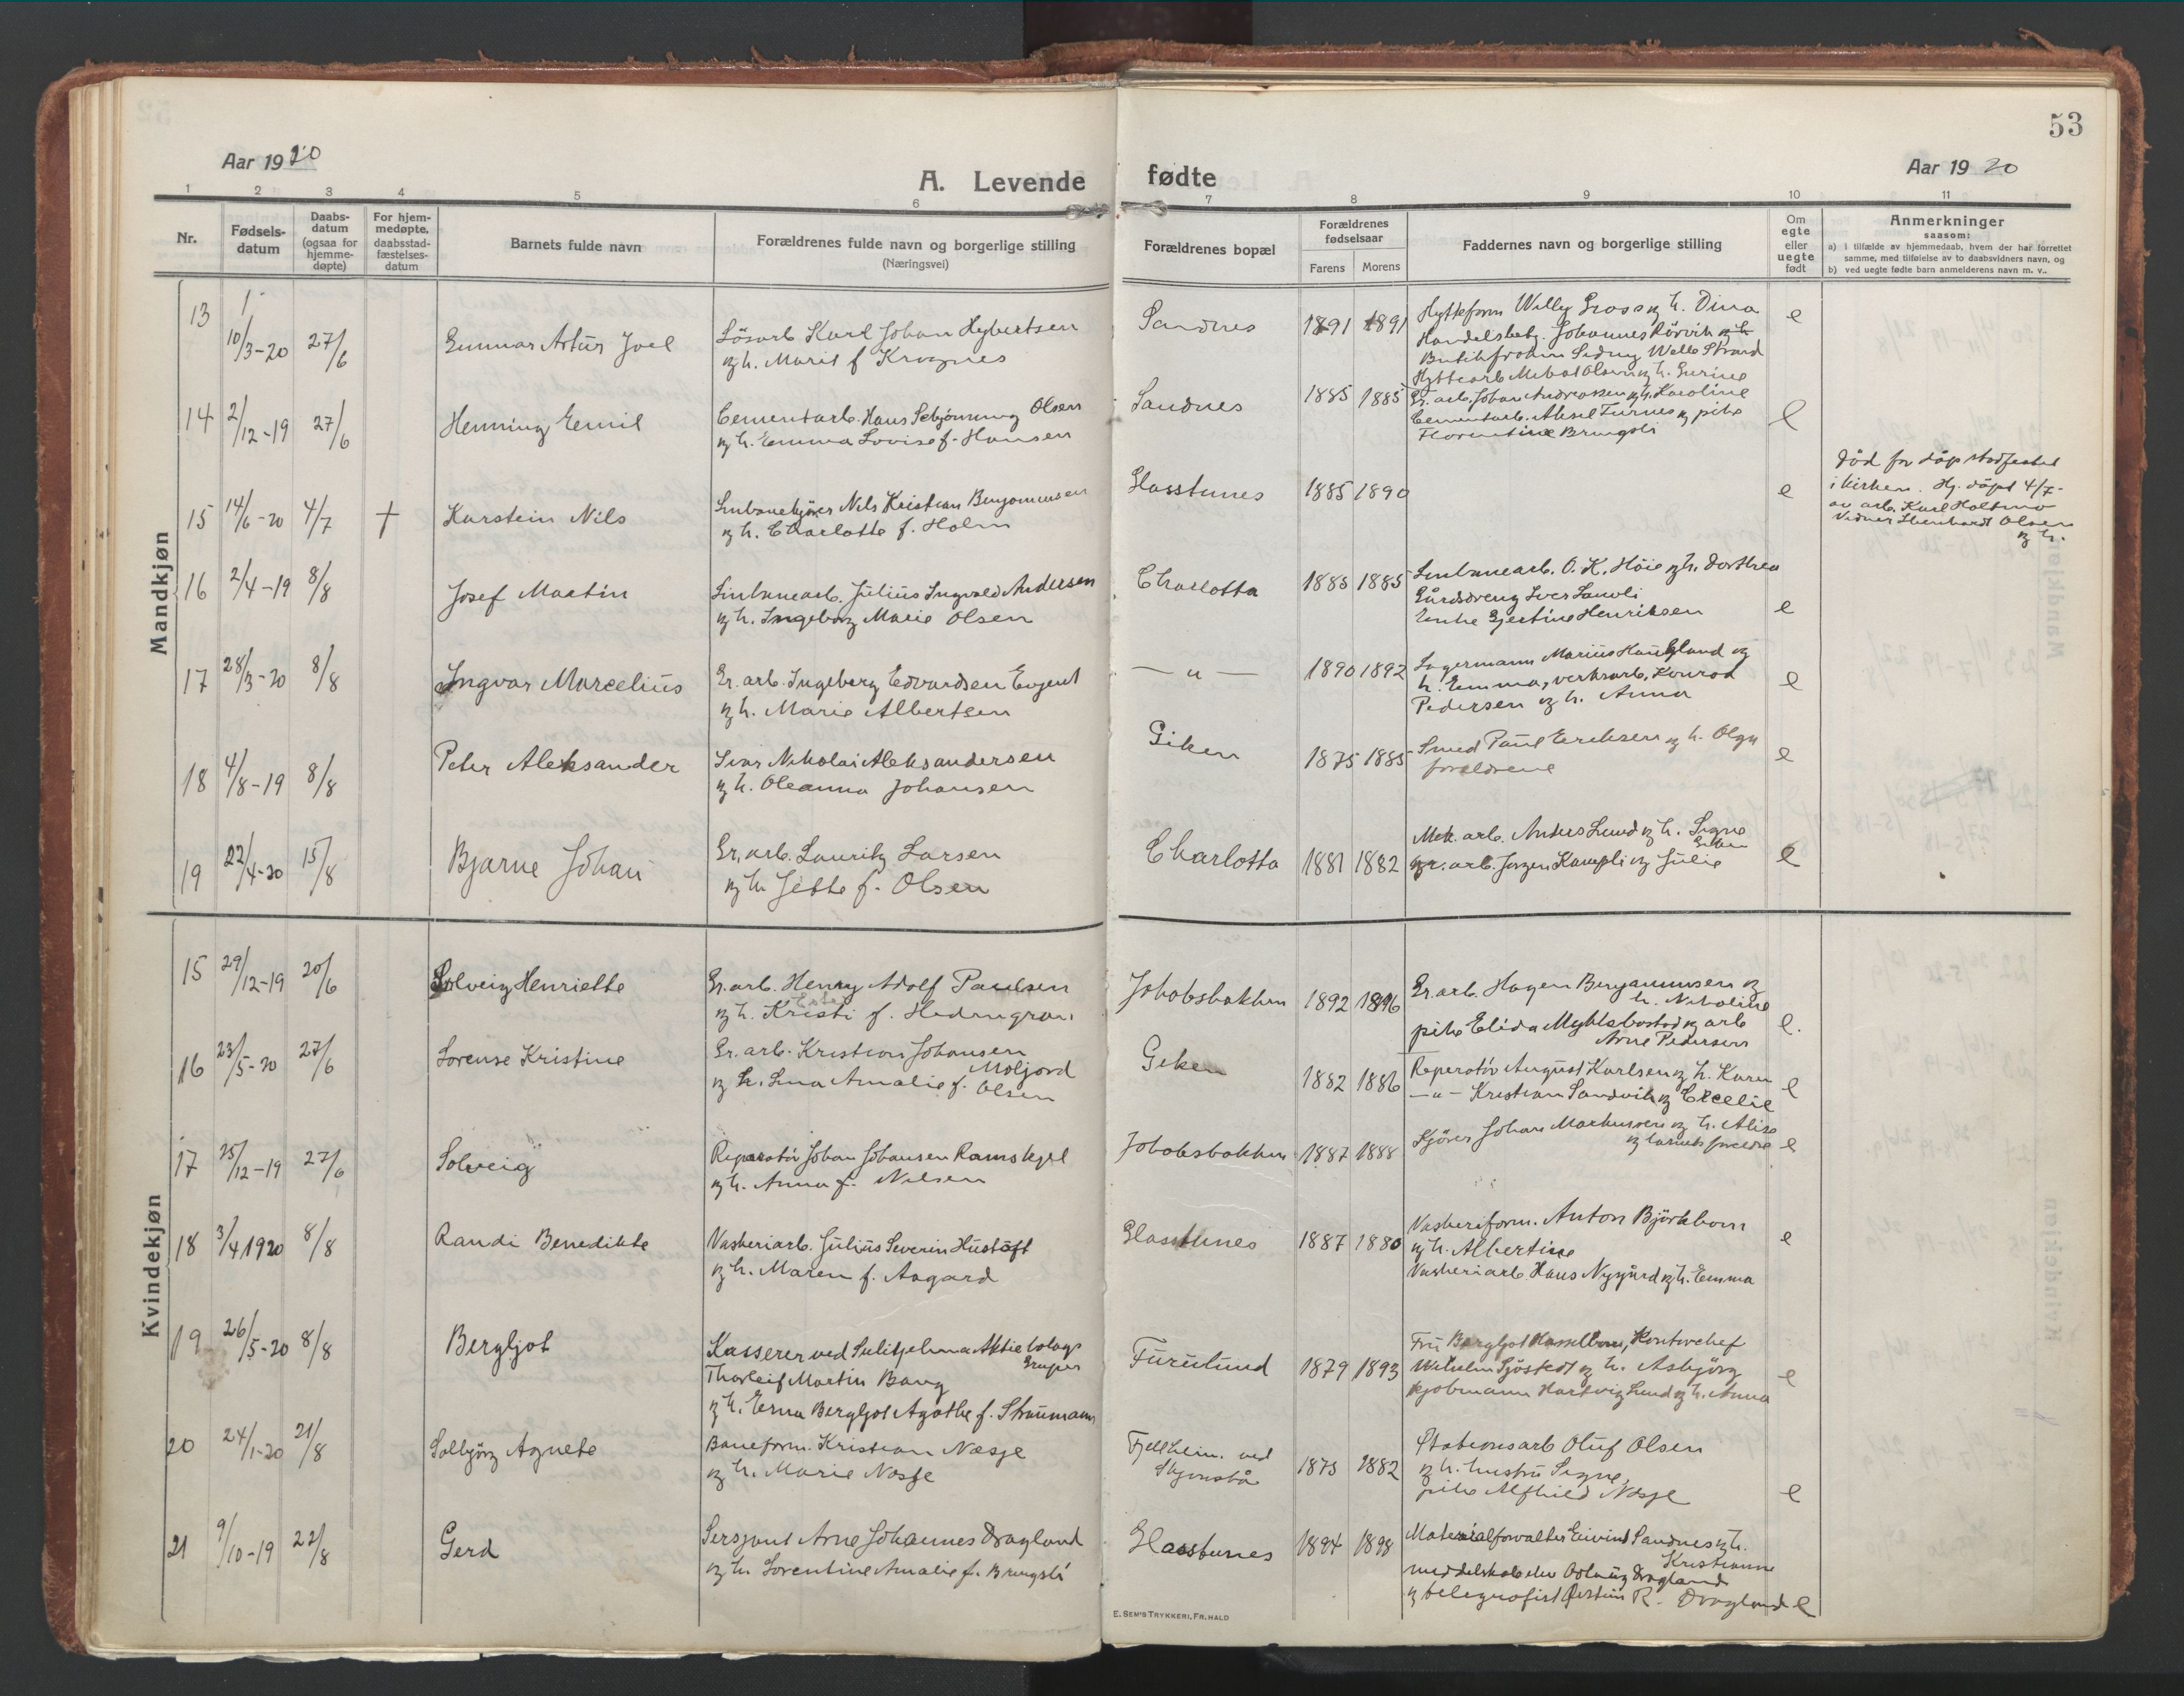 53
Aar 1920
A. Levende fødte
Aar 1920
1 2 3 4 5 6 7 8 9 10 11
Nr.
Fødsels-
datum
Daabs-
datum
(ogsaa for
hjemme-
døpte)
For hjem-
medøpte.
daabsstad-
fæstelses-
datum
Barnets fulde navn
Forældrenes fulde navn og borgerlige stilling
(Næringsvei)
Forældrenes bopæl
Forældrenes
fødselsaar
Farens Morens
Faddernes navn og borgerlige stilling
Om
egte
eller
uegte
født
Anmerkninger
saasom:
a) i tilfælde av hjemmedaab, hvem der har forrettet
samme, med tilføielse av to daabsvidners navn, og
b) ved uegte fødte barn anmelderens navn m. v..
Mandkjøn
13 10/3-20 27/6 Gunnar Artur Joel
Lösarb. Karl Johan Hybertsen
og h. Marit f Krognes
Sandnes 1891 1891
Hytteform Willy Gross og h. Dina
Handelsbetj. Johannes Rörvik og h
Butikfröken Wello Strand
e
14 2/12-19 27/6 Henning Emil
Cementarb. Hans Schjönning Olsen
og h. Emma Lovise f. Hansen
Sandnes 1885 1885
Hyttearb Mikal Olsen og h. Gurine
Gr. arb. Johan Andreassen og h. Karoline
Cementarb. Aksel Furnes og pike
Florentine Bringsli
e
15 14/6-20 4/7 † Karstein Nils
Linbanekjører Nils Kristian Benjaminsen
og h. Charlotte f. Holm
Glasstunes 1885 1890
e
Död før dåp stadfestet
i kirken. Hj. døpt 4/7-
av arb. Karl Holtmo
Vidner Ebenhardt Olsen
og h.
16 2/4-19 8/8 Josef Martin
Linbanearb. Julius Ingvald Andersen
og h. Ingeborg Marie Olsen
Charlotta 1885 1885
Linbanearb. O. K. Höie og h. Dorthea
Gårdsdreng
Enke Gjertine Henriksen
e
17 28/3-20 8/8 Ingvar Marcelius
Gr. arb. Ingeberg Edvardsen Evjent
og h. Marie Albertsen
— " — 1890 1892
Lagermann Marius Haugland og
h. Emma, verksarb. Konrad
Pedersen og h. Anna
e
18 4/8-19 8/8 Peter Aleksander
Ivar Nikolai Aleksandersen
og h. Oleanna Johansen
Giken 1875 1885
Smed Paul Eriksen og h. Olga
foreldrene
e
19 22/4-20 15/8 Bjarne Johan
Gr. arb. Lauritz Larsen
og h. Jette f. Olsen
Charlotta 1881 1882
Mek. arb. Anders Lund og h. Signe
gr. arb. Jorgen Kampli og Julie
e
Kvindekjøn
15 29/12-19 20/6 Solveig Henriette
Gr. arb. Henry Adolf Paulsen
og h. Kristi f. Hedengran
Jakobsbakken 1892 1896
Gr. arb. Hagen Benjaminsen og
h. Nikoline
pike Elida Myklebostad og arb
Arne Pedersen
e.
16 23/5-20 27/6 Lorense Kristine
Gr. arb. Kristian Johansen
Moljord
og h. Lina Amalie f. Olsen
Giken 1882 1886
Reperatör August Karlsen og h. Karen
— " — Kristian Sandvik og Cecelie
e
17 25/12-19 27/6 Solveig
Reperatör Johan Johansen Ramskjel
og h. Anna f. Nilsen
Jakobsbakken 1887 1888
Kjörer Johan Markussen og h. Alise
og barnets foreldre
e
18 3/4 1920 8/8 Randi Benedikte
Vaskeriarb. Julius Severin Hustöft
og h. Maren f. Aagard
Glasstunes 1887 1880
Vaskeriform. Anton Björkbom
og h. Albertine
Vaskeriarb. Hans Nygård og h. Emma
e
19 26/5-20 8/8 Bergljot
Kasserer ved Sulitjelma Aktiebolags
Gruper
Thorleif Martin Bang
og h. Erna Bergljot Agathe f. Straumann
Furulund 1879 1893
Fru Bergljot Hasselbom, Kontorchef
Wilhelm Sjöstedt og h. Asbjörg
kjöbmann Hartvig Lund og h. Anna
e
20 24/1-20 21/8 Solbjörg Agnete
Baneform. Kristian Næsje
og h. Marie Næsje
Fjellheim. ved
Skjønstå
1875 1882
Stationsarb Oluf Olsen
og h. hustru Signe,
pike Alfhild Næsje
e
21 9/10-19 22/8 Gerd
Sersjant Arne Johannes Dragland
og h. Lorentine Amalie f. Bringsli
Glasstunes 1894 1898
Materialforvalter Eivind Sandnes og h.
Kristianne
middelskoleelev Dragland
og telegrafist R. Dragland
e
E. SEM'S TRYKKERI, FR. HALD